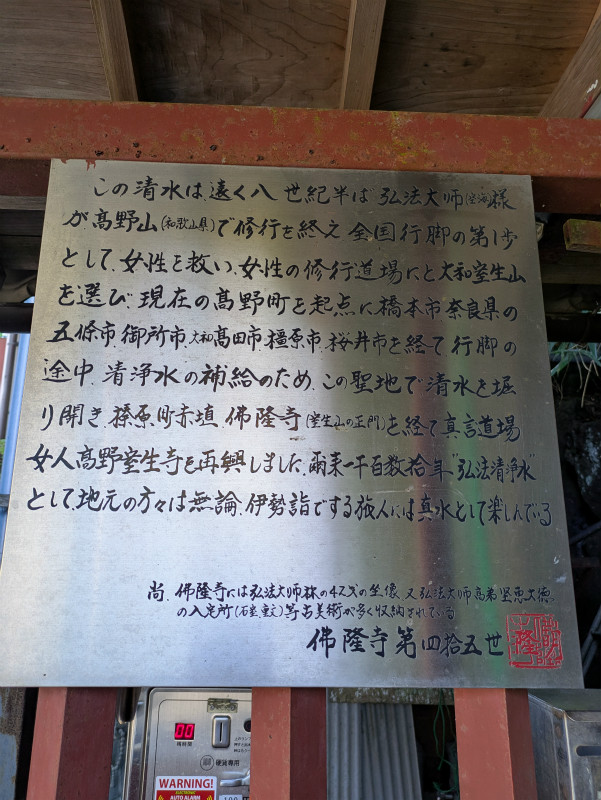 この清水は、遠く八世紀半ば弘法大師(空海)様
が高野山(和歌山県)で修行を終え全国行脚の第1歩
として、女性を救い、女性の修行道場にと大和室生山
を選び、現在の高野町を起点に橋本市奈良県の
五條市御所市、大和高田市、橿原市、桜井市を経て行脚の
途中、清浄水の補給のため、この聖地で清水を堀
り開き榛原町赤埴、佛隆寺(室生山の正門)を経て真言道場
女人高野室生寺を再興しました、爾来一千百数拾年"弘法清浄水"
として、地元の方々は無論、伊勢詣でする旅人には真水として楽しんでいる
尚、佛隆寺には弘法大師様の42才の坐像、又弘法大師高弟堅恵大徳
の入定所(石室、重文)等古美術が多く収納されている
佛隆寺第四拾五世
00
硬貨専用
WARNING!
ELECTRONIC
AUTO ALARM
100